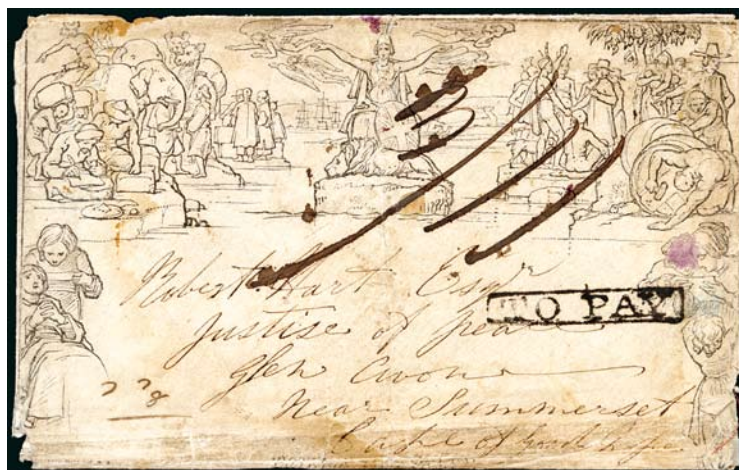 Robert Hart Esqr
TO PAY
Justise of peace
glen Avon
Near Summerset
Cape of good hope